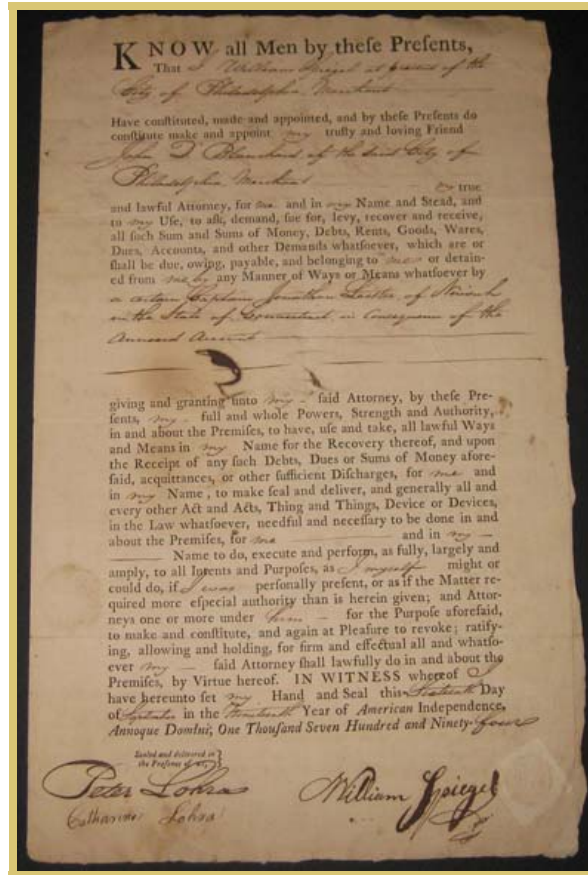 KNOW all Men by theſe Preſents,
That I William Spiegel at present of the
City of Philadelphia Merchant
Have conſtituted, made and appointed, and by theſe Preſents do
conſtitute make and appoint my truſty and loving Friend
John D Blanchard of the Said City of
Philadelphia Merchant my true
and lawful Attorney, for me and in my Name and Stead, and
to my Uſe, to aſk, demand, ſue for, levy, recover and receive,
all ſuch Sum and Sums of Money, Debts, Rents, Goods, Wares,
Dues, Accounts, and other Demands whatſoever, which are or
ſhall be due, owing, payable, and belonging to me or detain-
ed from me by any Manner of Ways or Means whatſoever by
a certain Captain Jonathan of
in the State of Connecticut in Consequence of the
Annexed Account
giving and granting unto my ſaid Attorney, by theſe Pre-
ſents, my full and whole Powers, Strength and Authority,
in and about the Premiſes, to have, uſe and take, all lawful Ways
and Means in my Name for the Recovery thereof, and upon
the Receipt of any ſuch Debts, Dues or Sums of Money afore-
ſaid, acquittances, or other ſufficient Diſcharges, for me and
in my Name, to make ſeal and deliver, and generally all and
every other Act and Acts, Thing and Things, Device or Devices,
in the Law whatſoever, needful and neceſſary to be done in and
about the Premiſes, for me and in my
Name to do, execute and perform, as fully, largely and
amply, to all Intents and Purpoſes, as I myself might or
could do, if I was perſonally preſent, or as if the Matter re-
quired more eſpecial authority than is herein given; and Attor-
neys one or more under him for the Purpoſe aforeſaid,
to make and conſtitute, and again at Pleaſure to revoke; ratify-
ing, allowing and holding, for firm and effectual all and whatſo-
ever my ſaid Attorney ſhall lawfully do in and about the
Premiſes, by Virtue hereof. IN WITNESS whereof I
have hereunto ſet my Hand and Seal this Day
of September in the Nineteenth Year of American Independence,
Annoque Domini, One Thouſand Seven Hundred and Ninety-four
Sealed and delivered in
the Preſence of us,
Peter Lohra
William Spiegel
Catharine Lohra